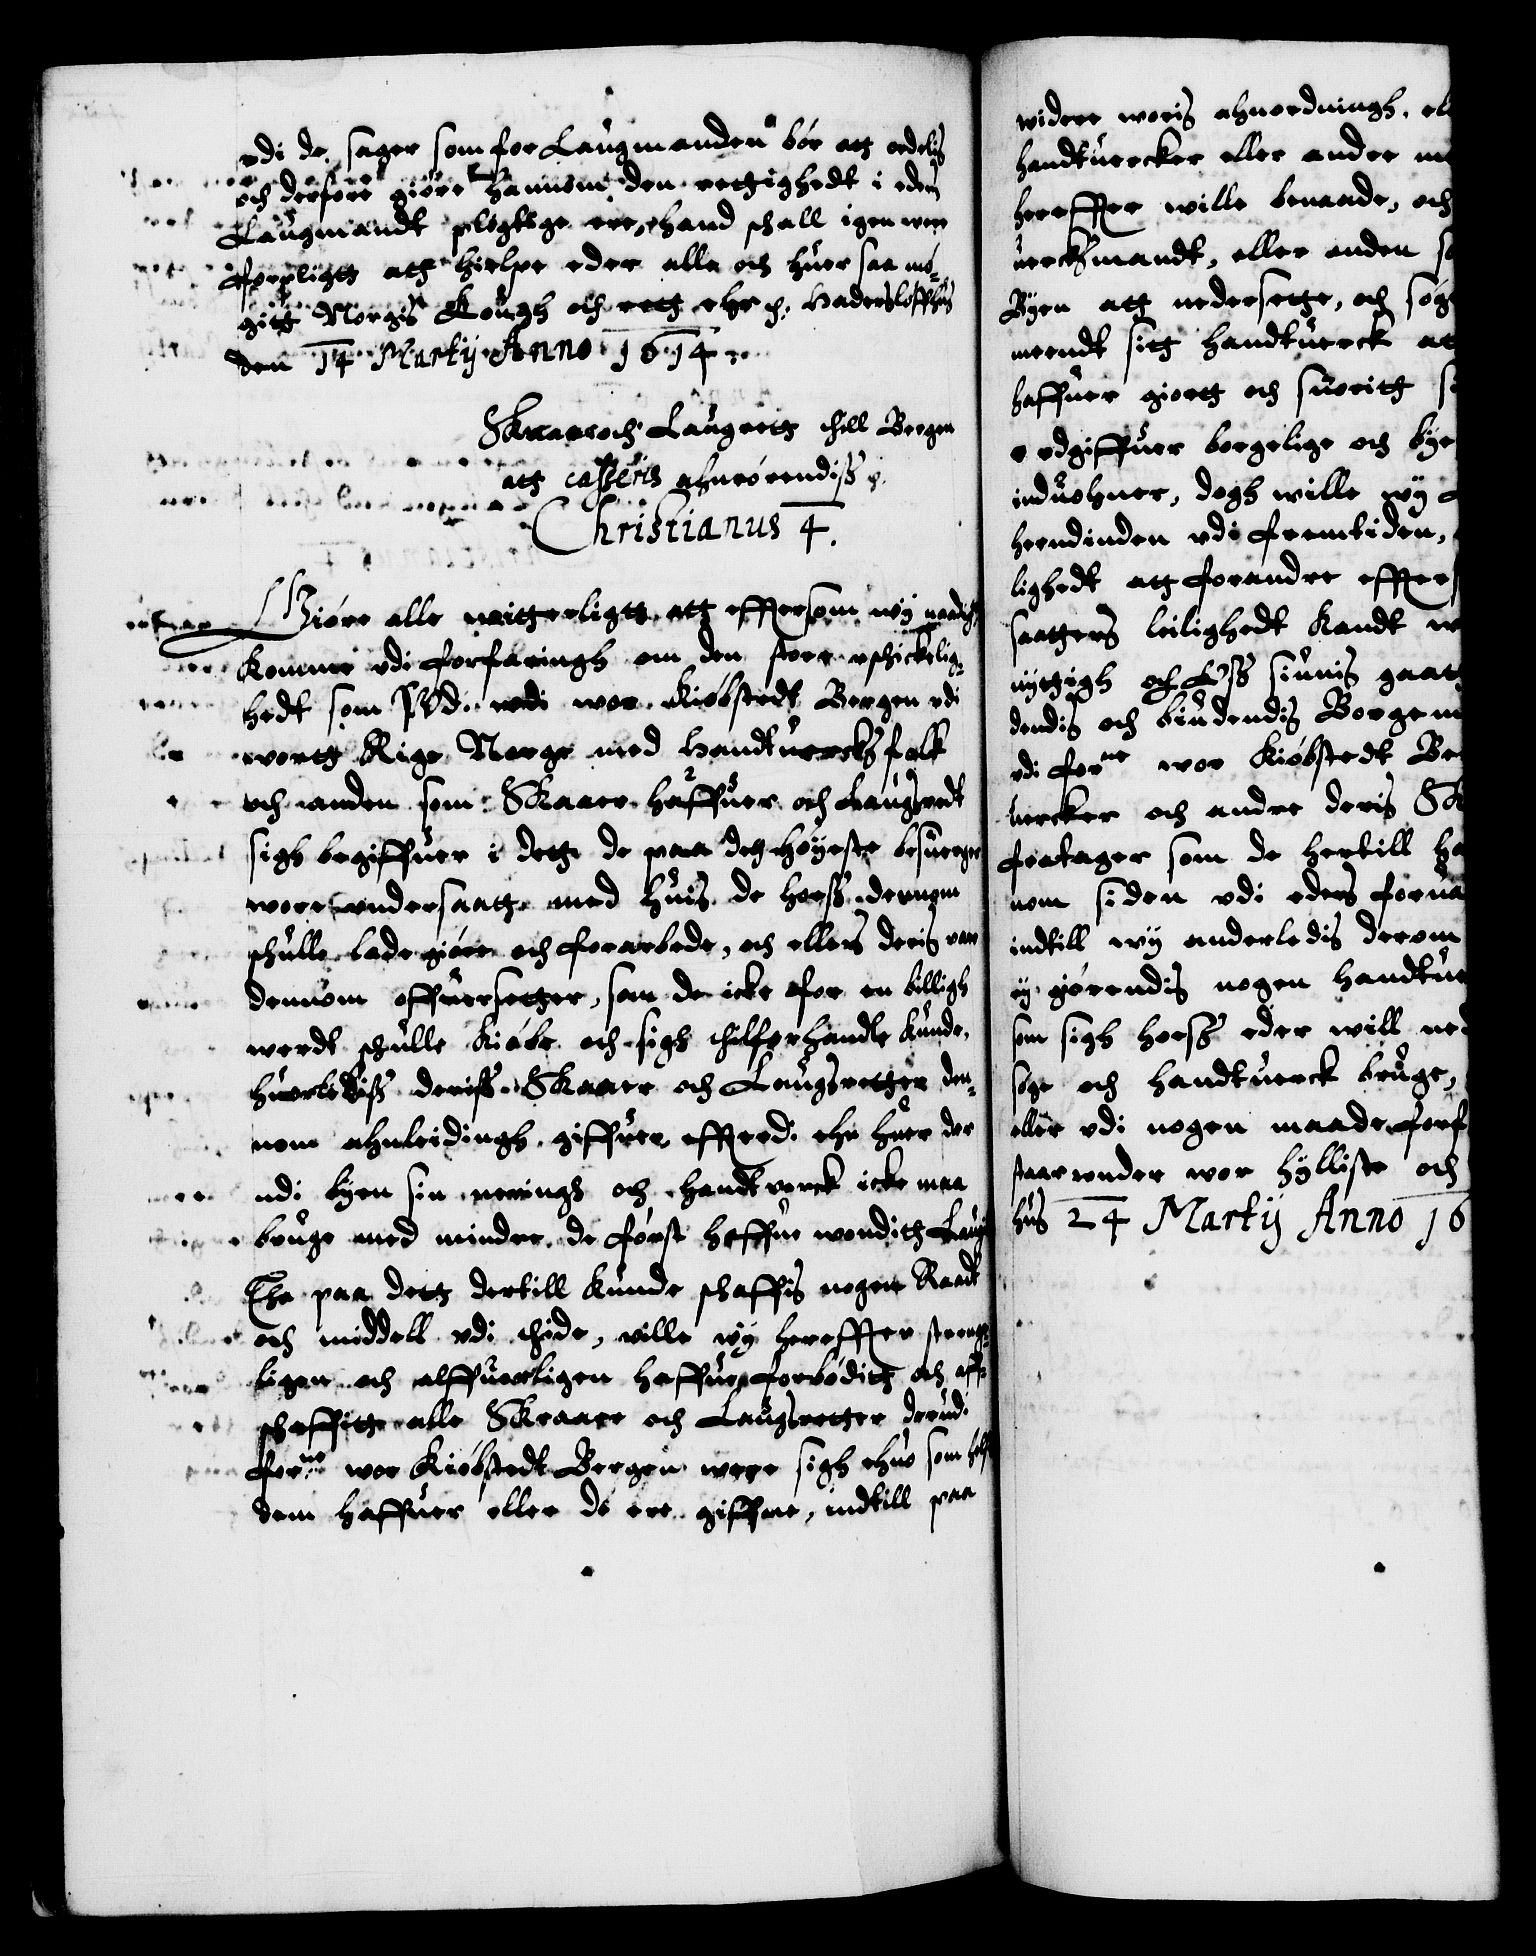 vdi de sager som for Laugmanden bör att ordelis
och derfore giöre hannom den rettighedt i eders
Laugmandt plegtige ere, hand schall igen were
forpligtt att hielpe eder alle och huer saa mö-
gitt Norgis Lough och rett ehr p. Haderslöffhus
den 14 Martij Anno 1614
Skraaer och Laugrett till Bergen
att casseris ahnrörendiss p.
Christianus 4.
Giöre alle witterligtt att effter som wij naadigst
komme vdi forfaringh om den store uschickelig-
hedt som vdi wor Kiöbstedt Bergen vdi
wortt Rige Norge med Handtuercksfolk
och anden som Skraaer haffuer och Laugsrett
sigh begiffuer i dett de paa det höyeste besuerger
wore vndersaatt med huis de hoess dennom
schulle lade giöre och forarbede, och ellers deris vare
dennom offuersetter, som de icke for en billigh
werdt schulle kiöbe och sigh tilforhandle kunde,
huorledis deriss Skraaer och Laugsretter den-
nom ahnleidingh giffuer, effterdi ehn huer der
udi byen sin neringh och handtverck icke maa
bruge med mindre de först haffue wondith Laug
Tha paa dett dertill kunde schaffis nogen Raadt
och middell vdi tide, wille wij hereffter strenge-
ligen och alffuorligen haffue forböditt och aff-
schaffitt alle Skraaer och Laugsretter derudi
forne wor Kiöbstedt Bergen were sigh ehuo som helst
dem haffuer eller de ere giffne, indtill paa
widere woris ahnordningh, ell
handtuercker eller andre
hereffter wille benaade, och
uercksmandt, eller anden
Byen att nedersette, och sög
meendt sitt handtuerck at
haffuer giortt och suoritt
udgiffuer borgelige och bye
induohner, dogh wille wij
heendinden vdi fremtiden,
lighedt att forandre effter
saatters leilighedt kandt
nyttigh och Oss siunis gaatt
dendis och biudendis Borgem
vdi forne wor Kiöbstedt Be
uercker och andre deris Sk
fratager som de hertill
nom siden vdi eders forua
indtill wij anderledis derom
ey giörendis nogen handtue
som sigh hoess eder will ned
söge och handtuerck bruge,
eller vdi nogen maade forf
staar under wor hylliste och
hus 24 Martij Anno 16